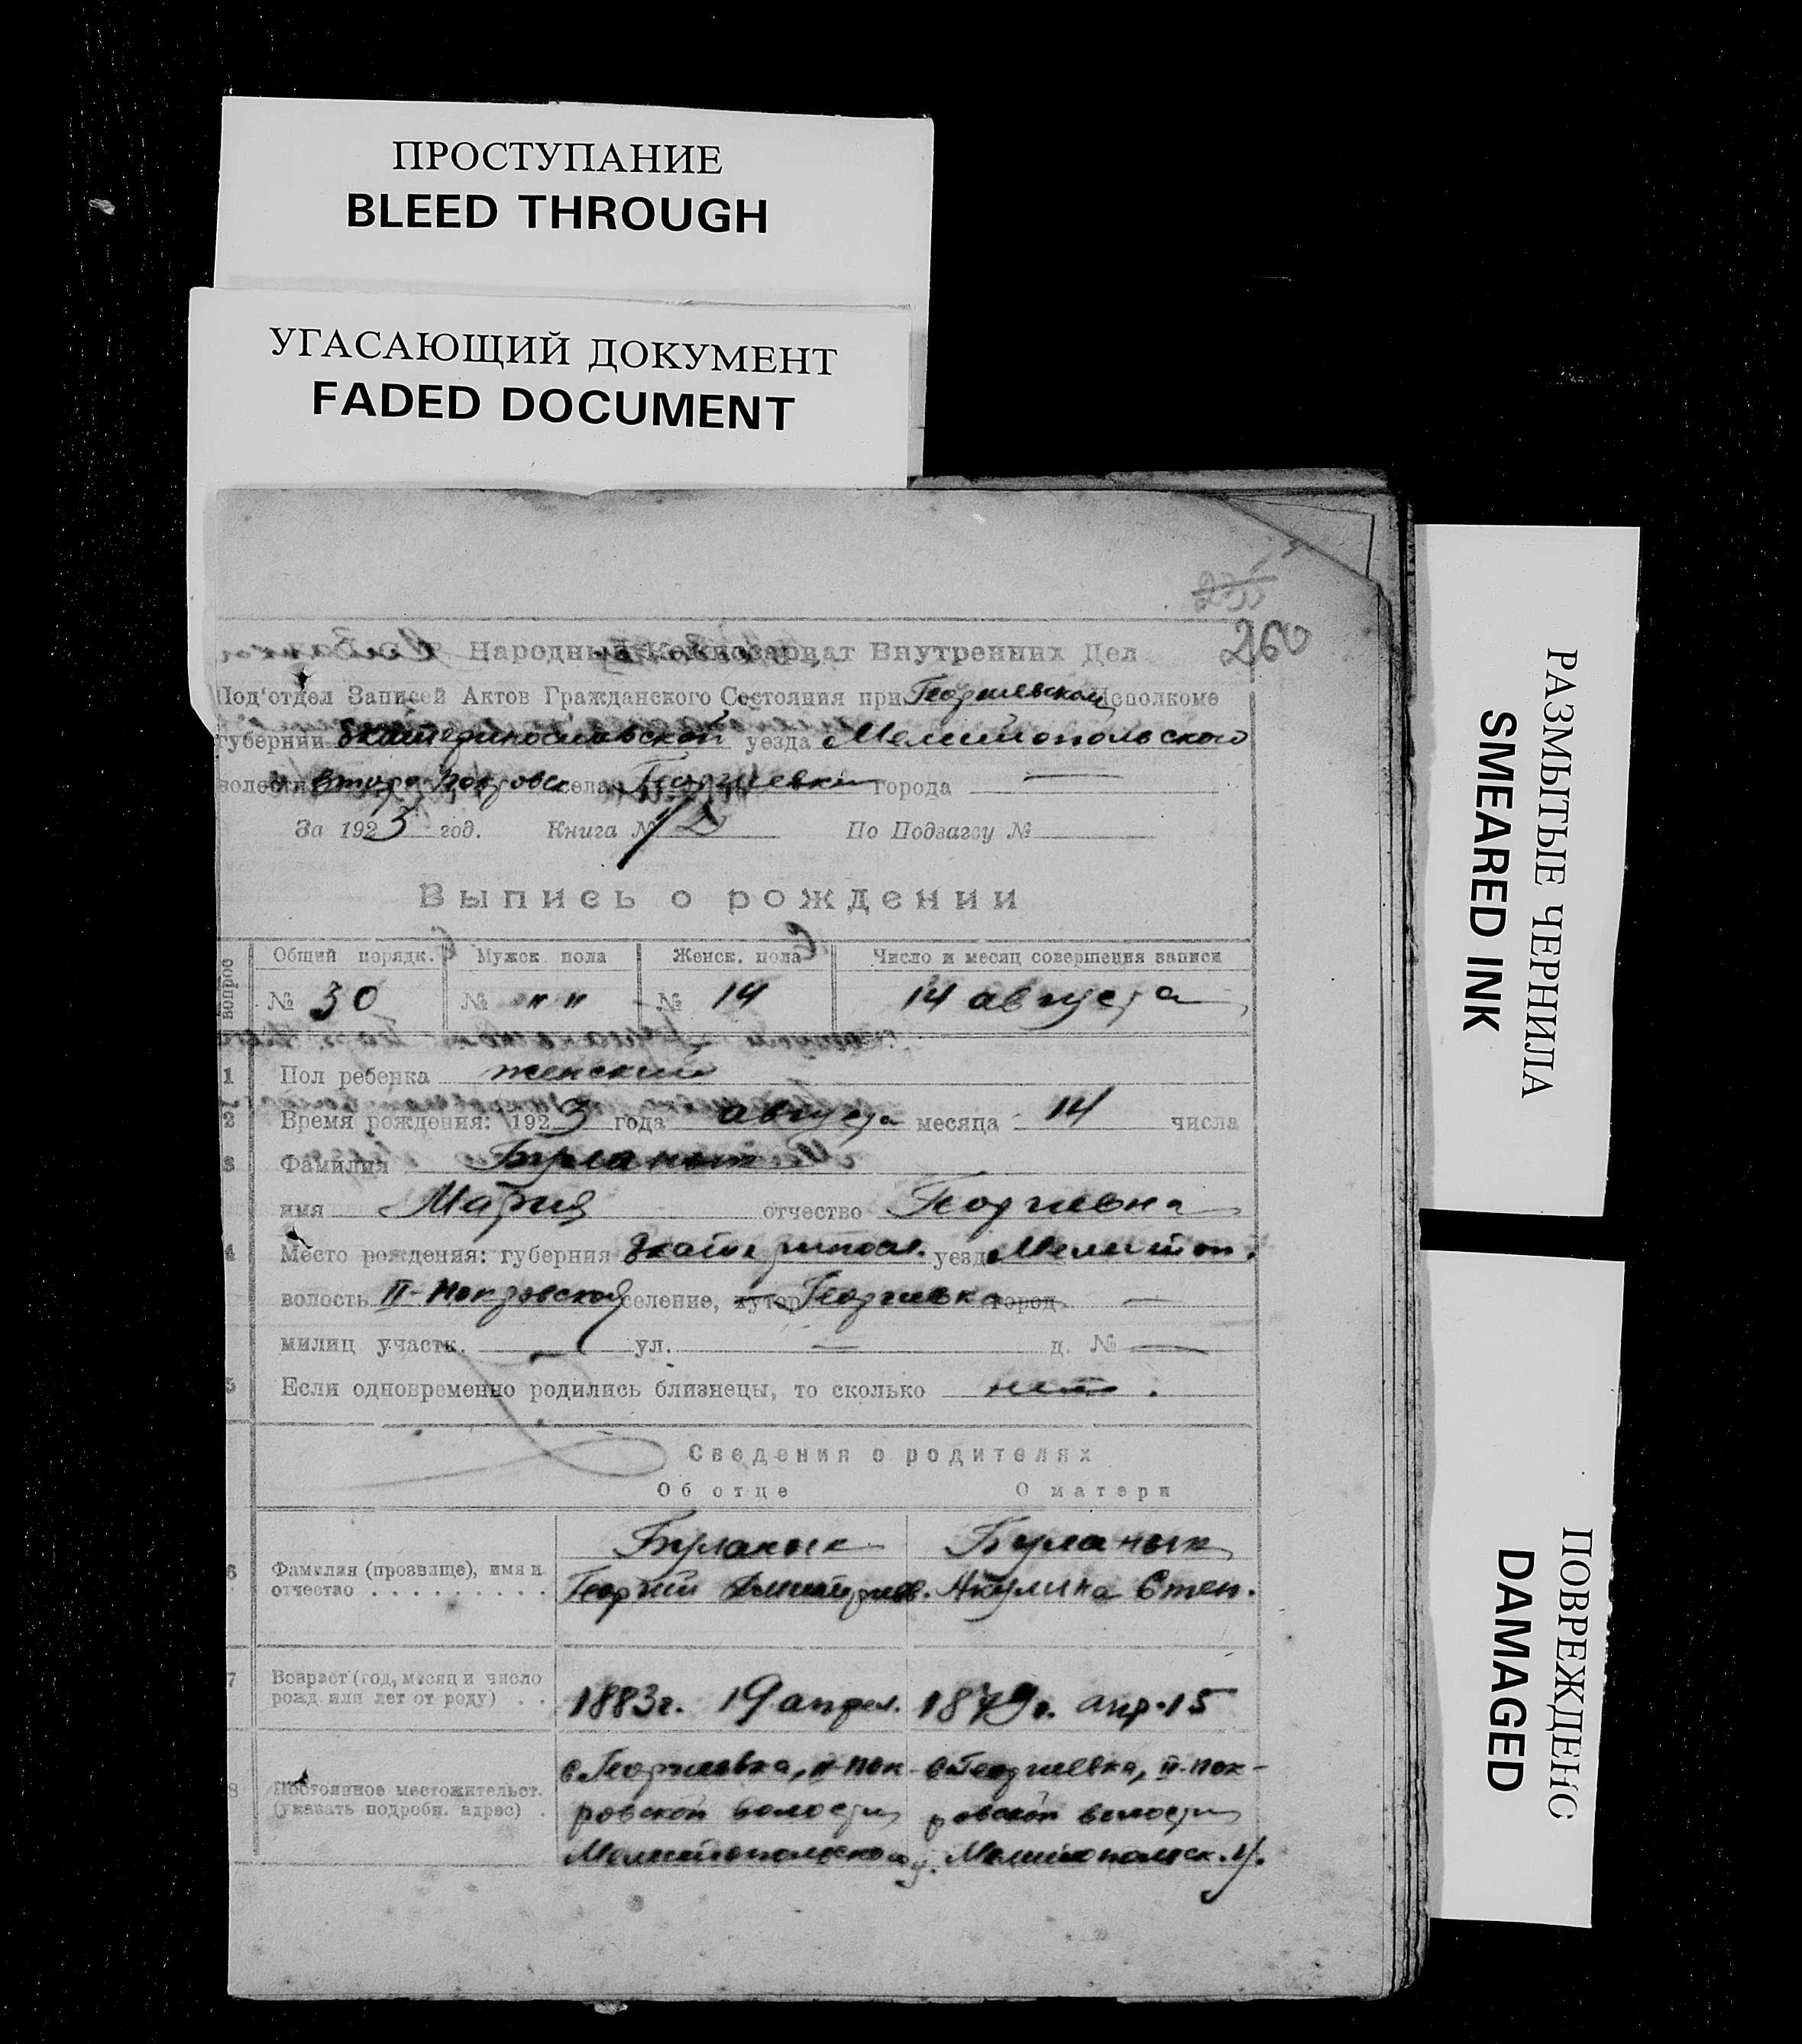 ПРОСТУПАНИЕ
BLEED THROUGH
УГАСАЮЩИЙ ДОКУМЕНТ
FADED DOCUMENT
РАЗМЫТЫЕ ЧЕРНИЛА
SMEARED INK
ПОВРЕЖДЕНС
DAMAGED
260
Народный Комиссариат Внутренних Дел
Под'отдел Записей Актов Гражданского Состояния при Георгиевском Исполкоме
губернии Екатеринославской уезда Мелитопольского
волости Второ-Покровск села Георгиевки города —
За 1923 год. Книга № По Подзагсу №
Выпись о рождении
вопрос
Общий порядк. Мужск. пола Женск. пола Число и месяц совершения записи
№ 30 № " " № 14 14 августа
1 Пол ребенка женский
2 Время рождения: 1923 года августа месяца 14 числа
3 Фамилия Буланык
имя Мария отчество Георгиевна
4 Место рождения: губерния Екатериносл. уезд Мелитоп.
волость II-Покровской селение, хутор Георгиевка город —
милиц участк. — ул. — д. № —
5 Если одновременно родились близнецы, то сколько нет.
Сведения о родителях
Об отце О матери
6 Фамилия (прозвище), имя и отчество . . . . . . . . .
Буланык Буланык
Георгий Дмитриев. Акулина Степ.
7 Возраст (год, месяц и число рожд. или лет от роду) . .
1883г. 19 апрел. 1879г. апр. 15
8 Постоянное местожительст. (указать подробн. адрес) .
с Георгиевка, II-Пок- с Георгиевка, II-Пок-
ровской волости ровской волости
Мелитопольского у. Мелитопольск. у.